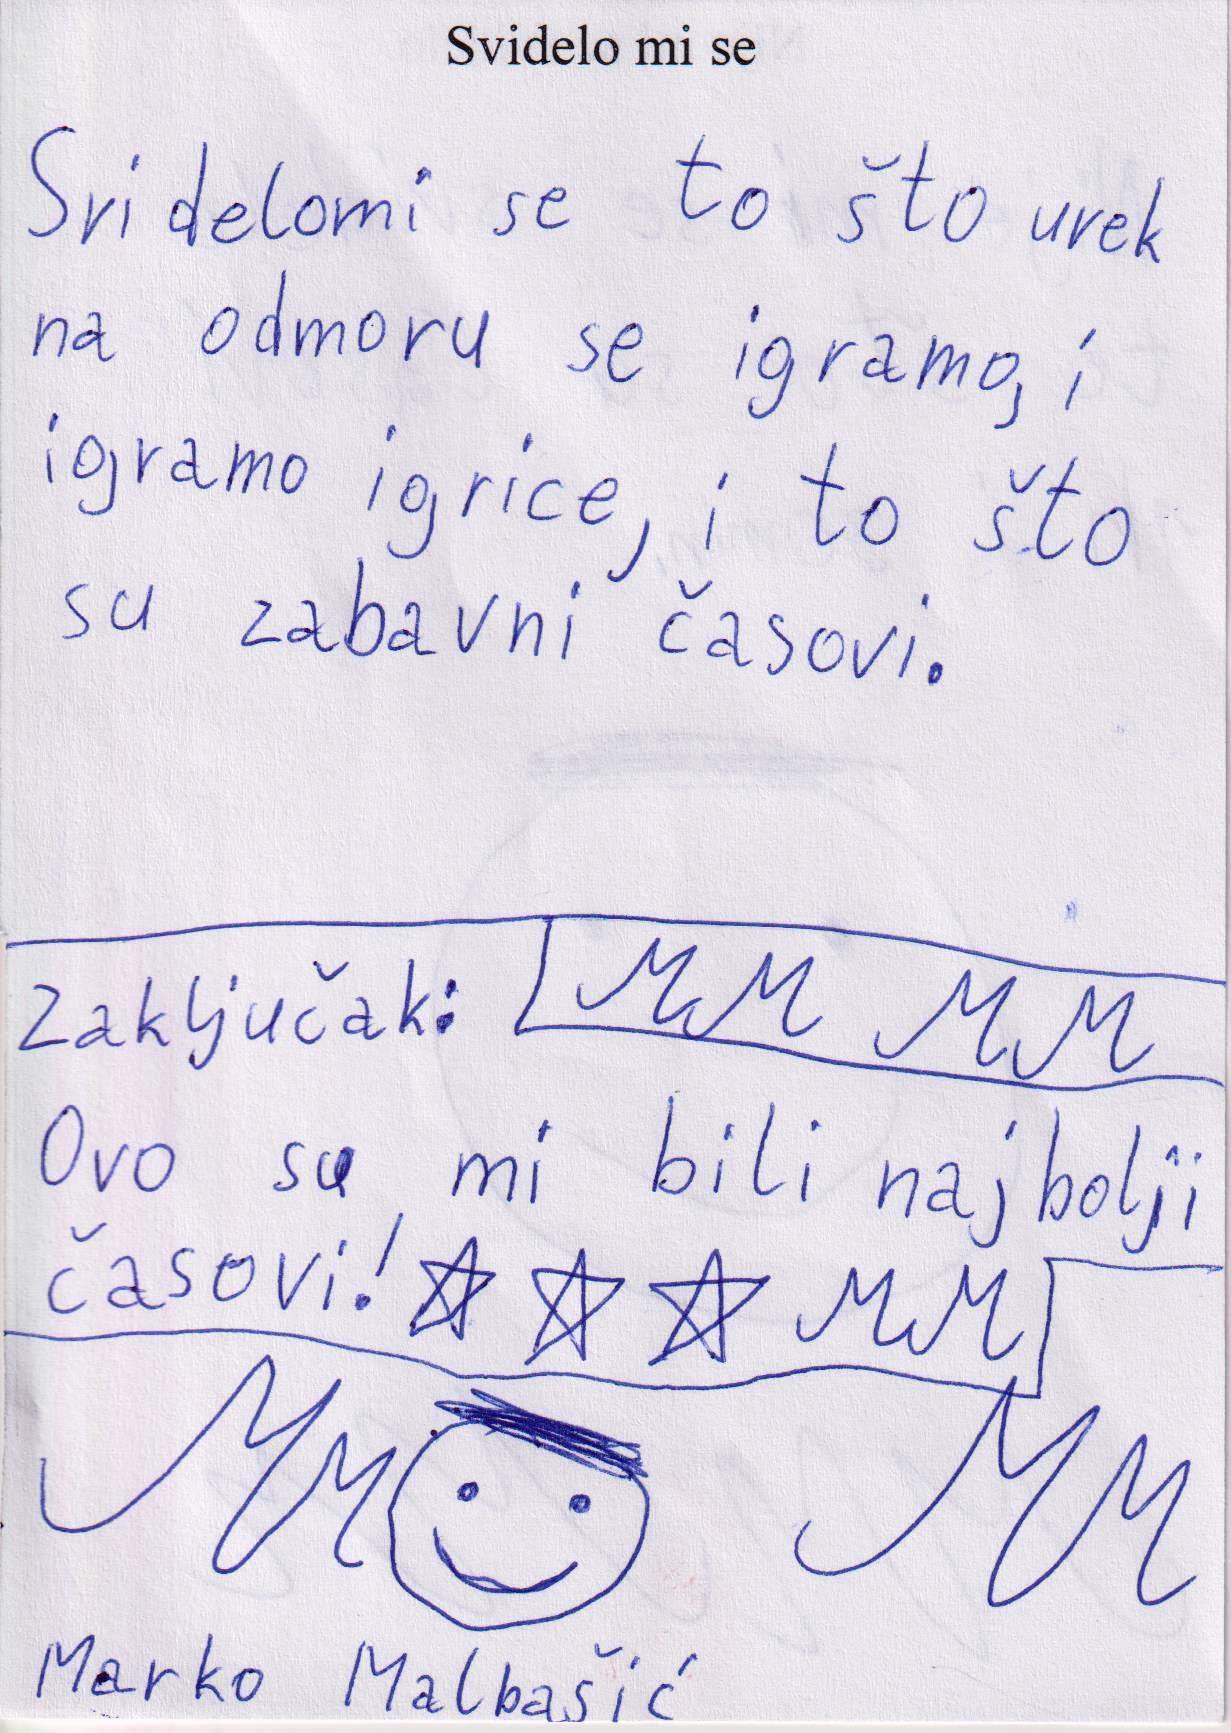 Svidelo mi se
Svidelomi se to što uvek
na odmoru se igramo, i
igramo igrice, i to što
su zabavni časovi.
Zaključak: MM MM
Ovo su mi bili najbolji
časovi! MM
MM MM
Marko Malbašić